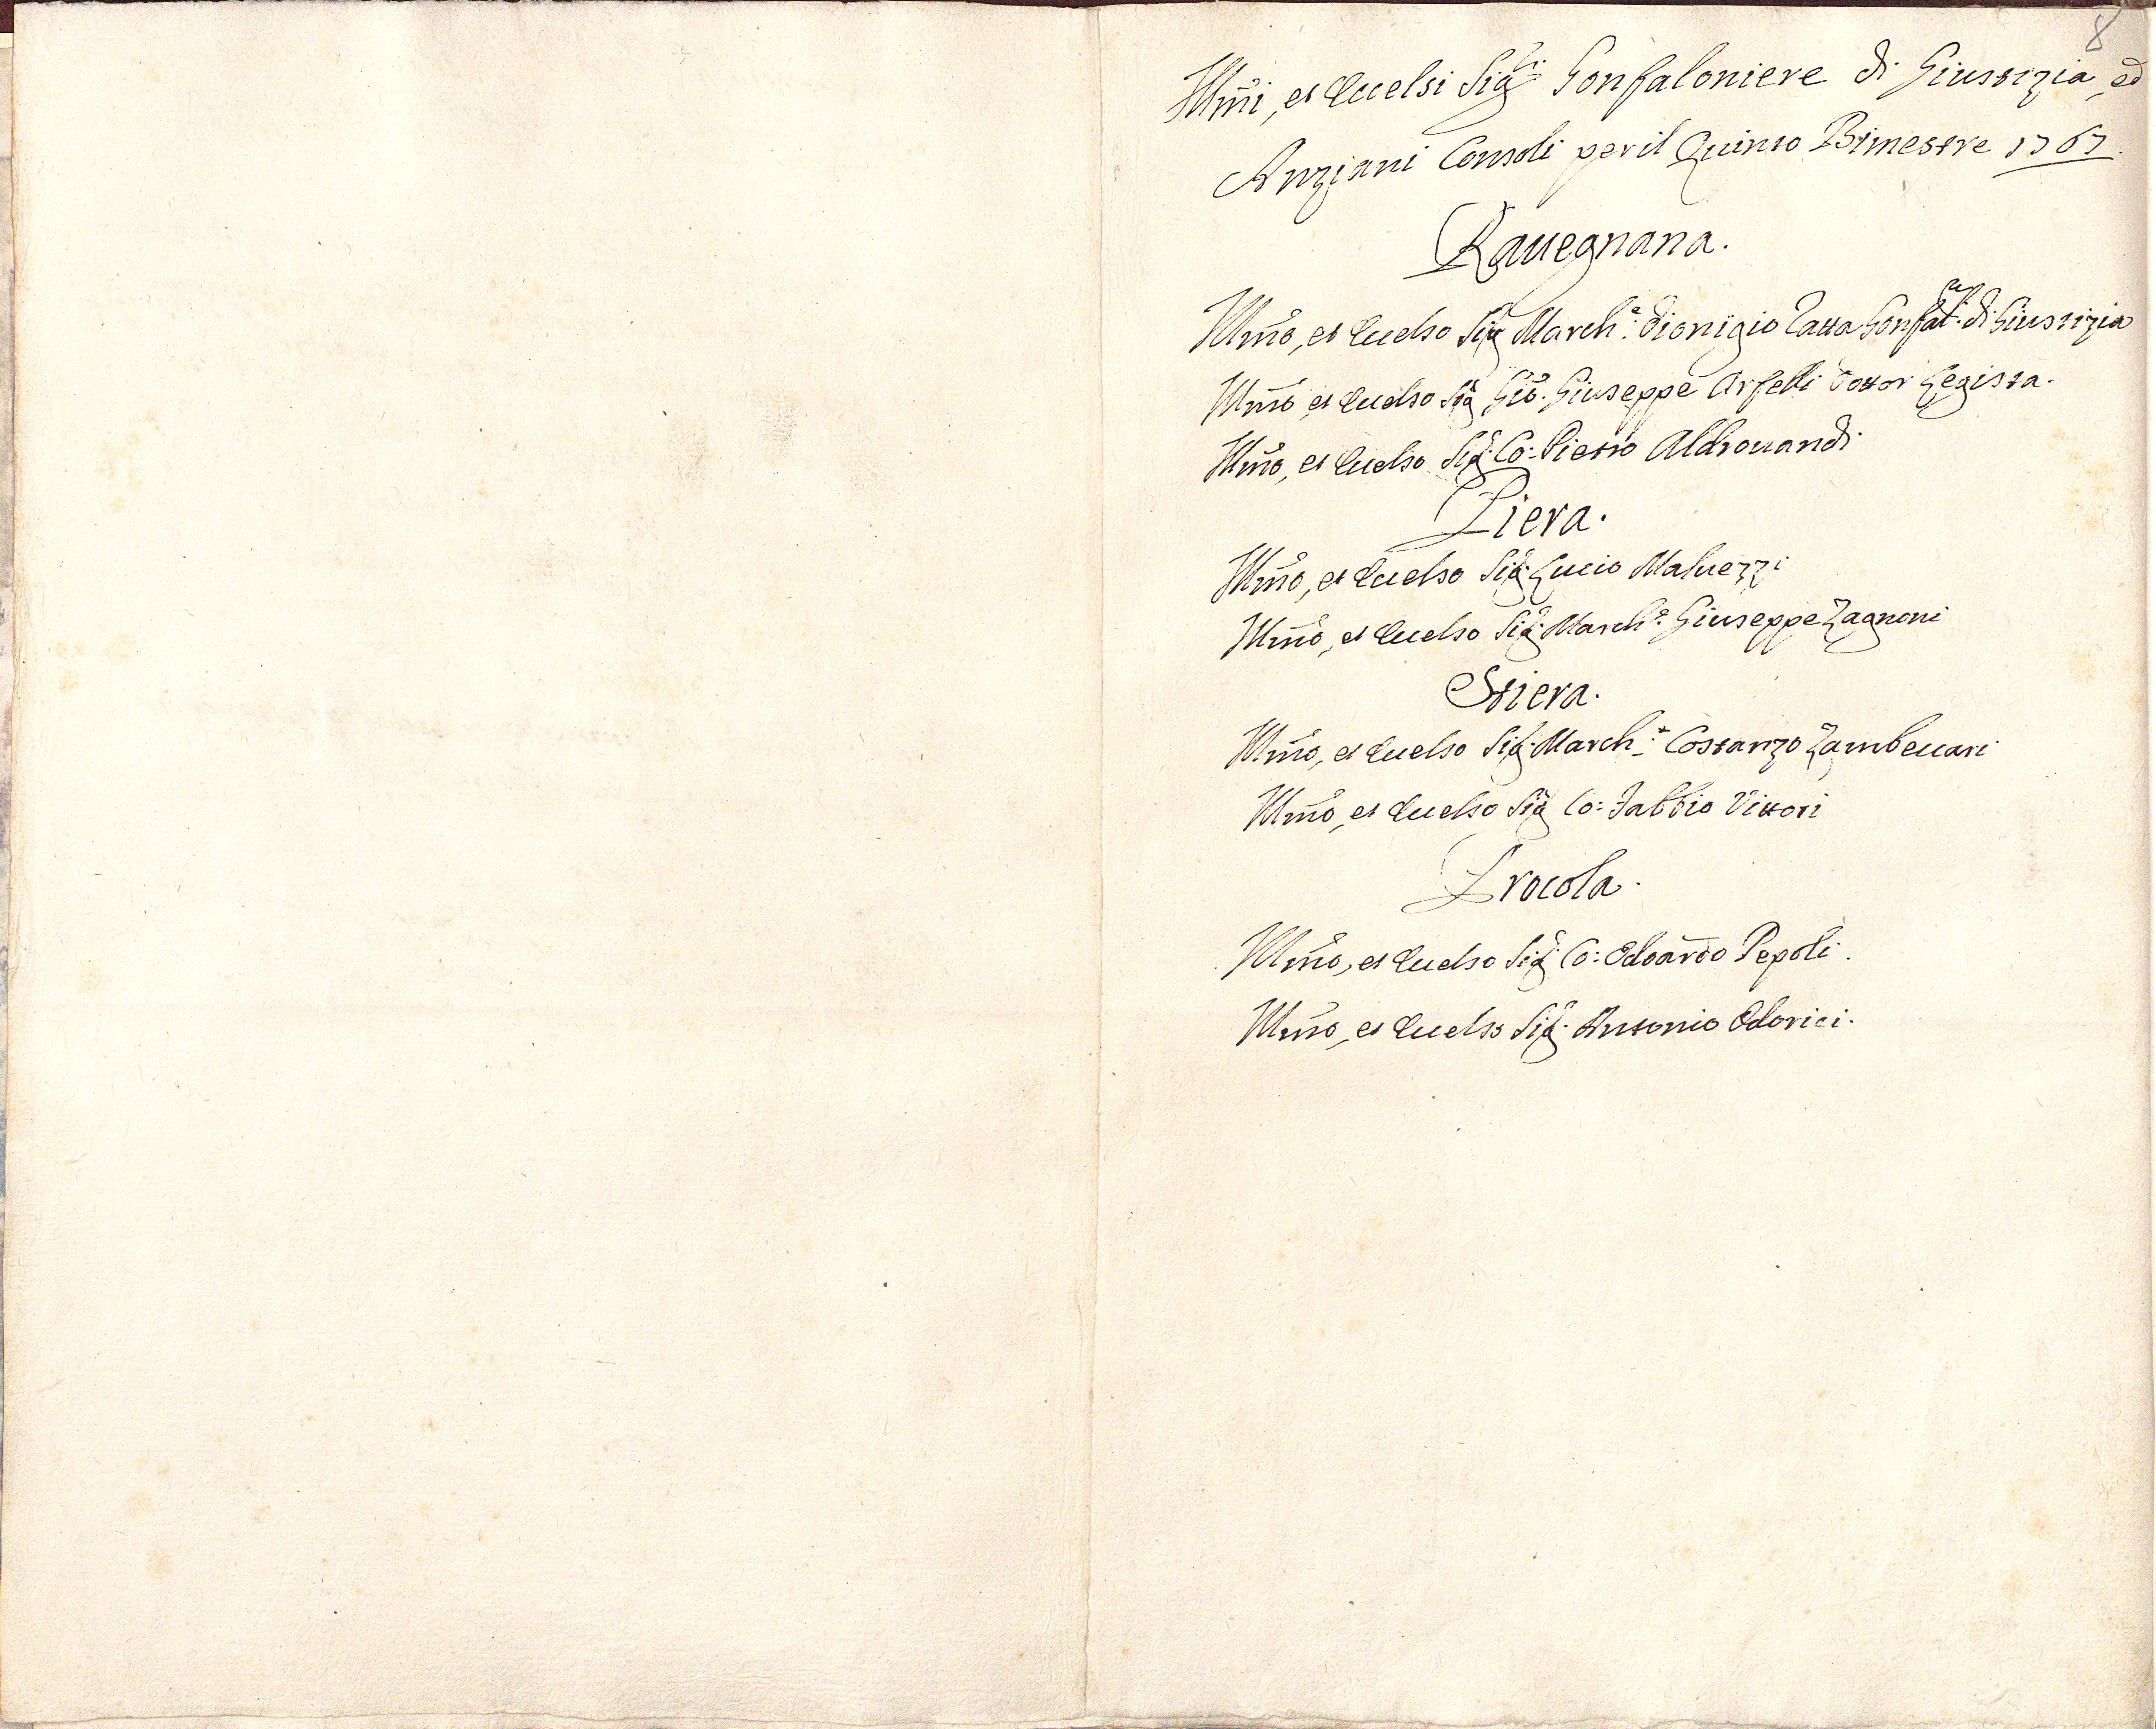 8
Illm̃i, et Eccelsi Sig:ri Gonfaloniere di Giustizia, ed
Anziani Consoli per il Quinto Bimestre 1767.
Rauegnana.
Illm̃o, et Eccelso Sig: March:e Dionigio Tatta Gonfal:re di Giustizia
Illm̃o, et Eccelso Sig: Gio: Giuseppe Arfelli Dottor Legista.
Illm̃o, et Eccelso Sig: Co: Pietro Aldrouandi
Piera.
Illm̃o, et Eccelso Sig: Lucio Maluezzi
Illm̃o, et Eccelso Sig: March:e Giuseppe Zagnoni
Stiera.
Illm̃o, et Eccelso Sig: March:e Costanzo Zambeccari
Illm̃o, et Eccelso Sig: Co: Fabbio Vittori
Procola.
Illm̃o, et Eccelso Sig: Co: Edoardo Pepoli.
Illm̃o, et Eccelso Sig: Antonio Odorici.